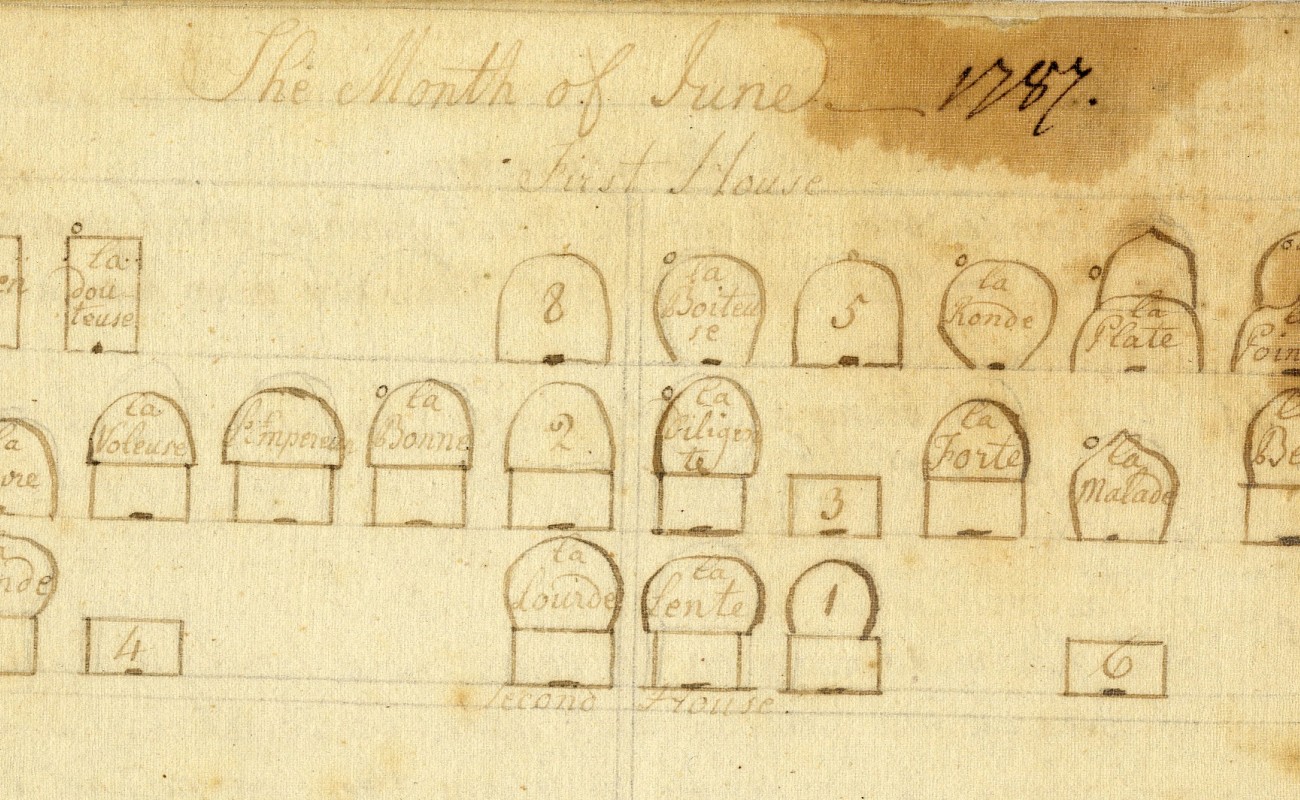 The Month of June 1787.
First House
en
la
dou-
teuse
8
la
Boiteu
se
5
la
Ronde
la
Plate
Poin
la
vre
la
Voleuse
la
Bonne
2
la
Diligen
te
3
la
Forte
la
Malade
Be
nde
4
la
Lourde
la
Lente
1
6
Second House.